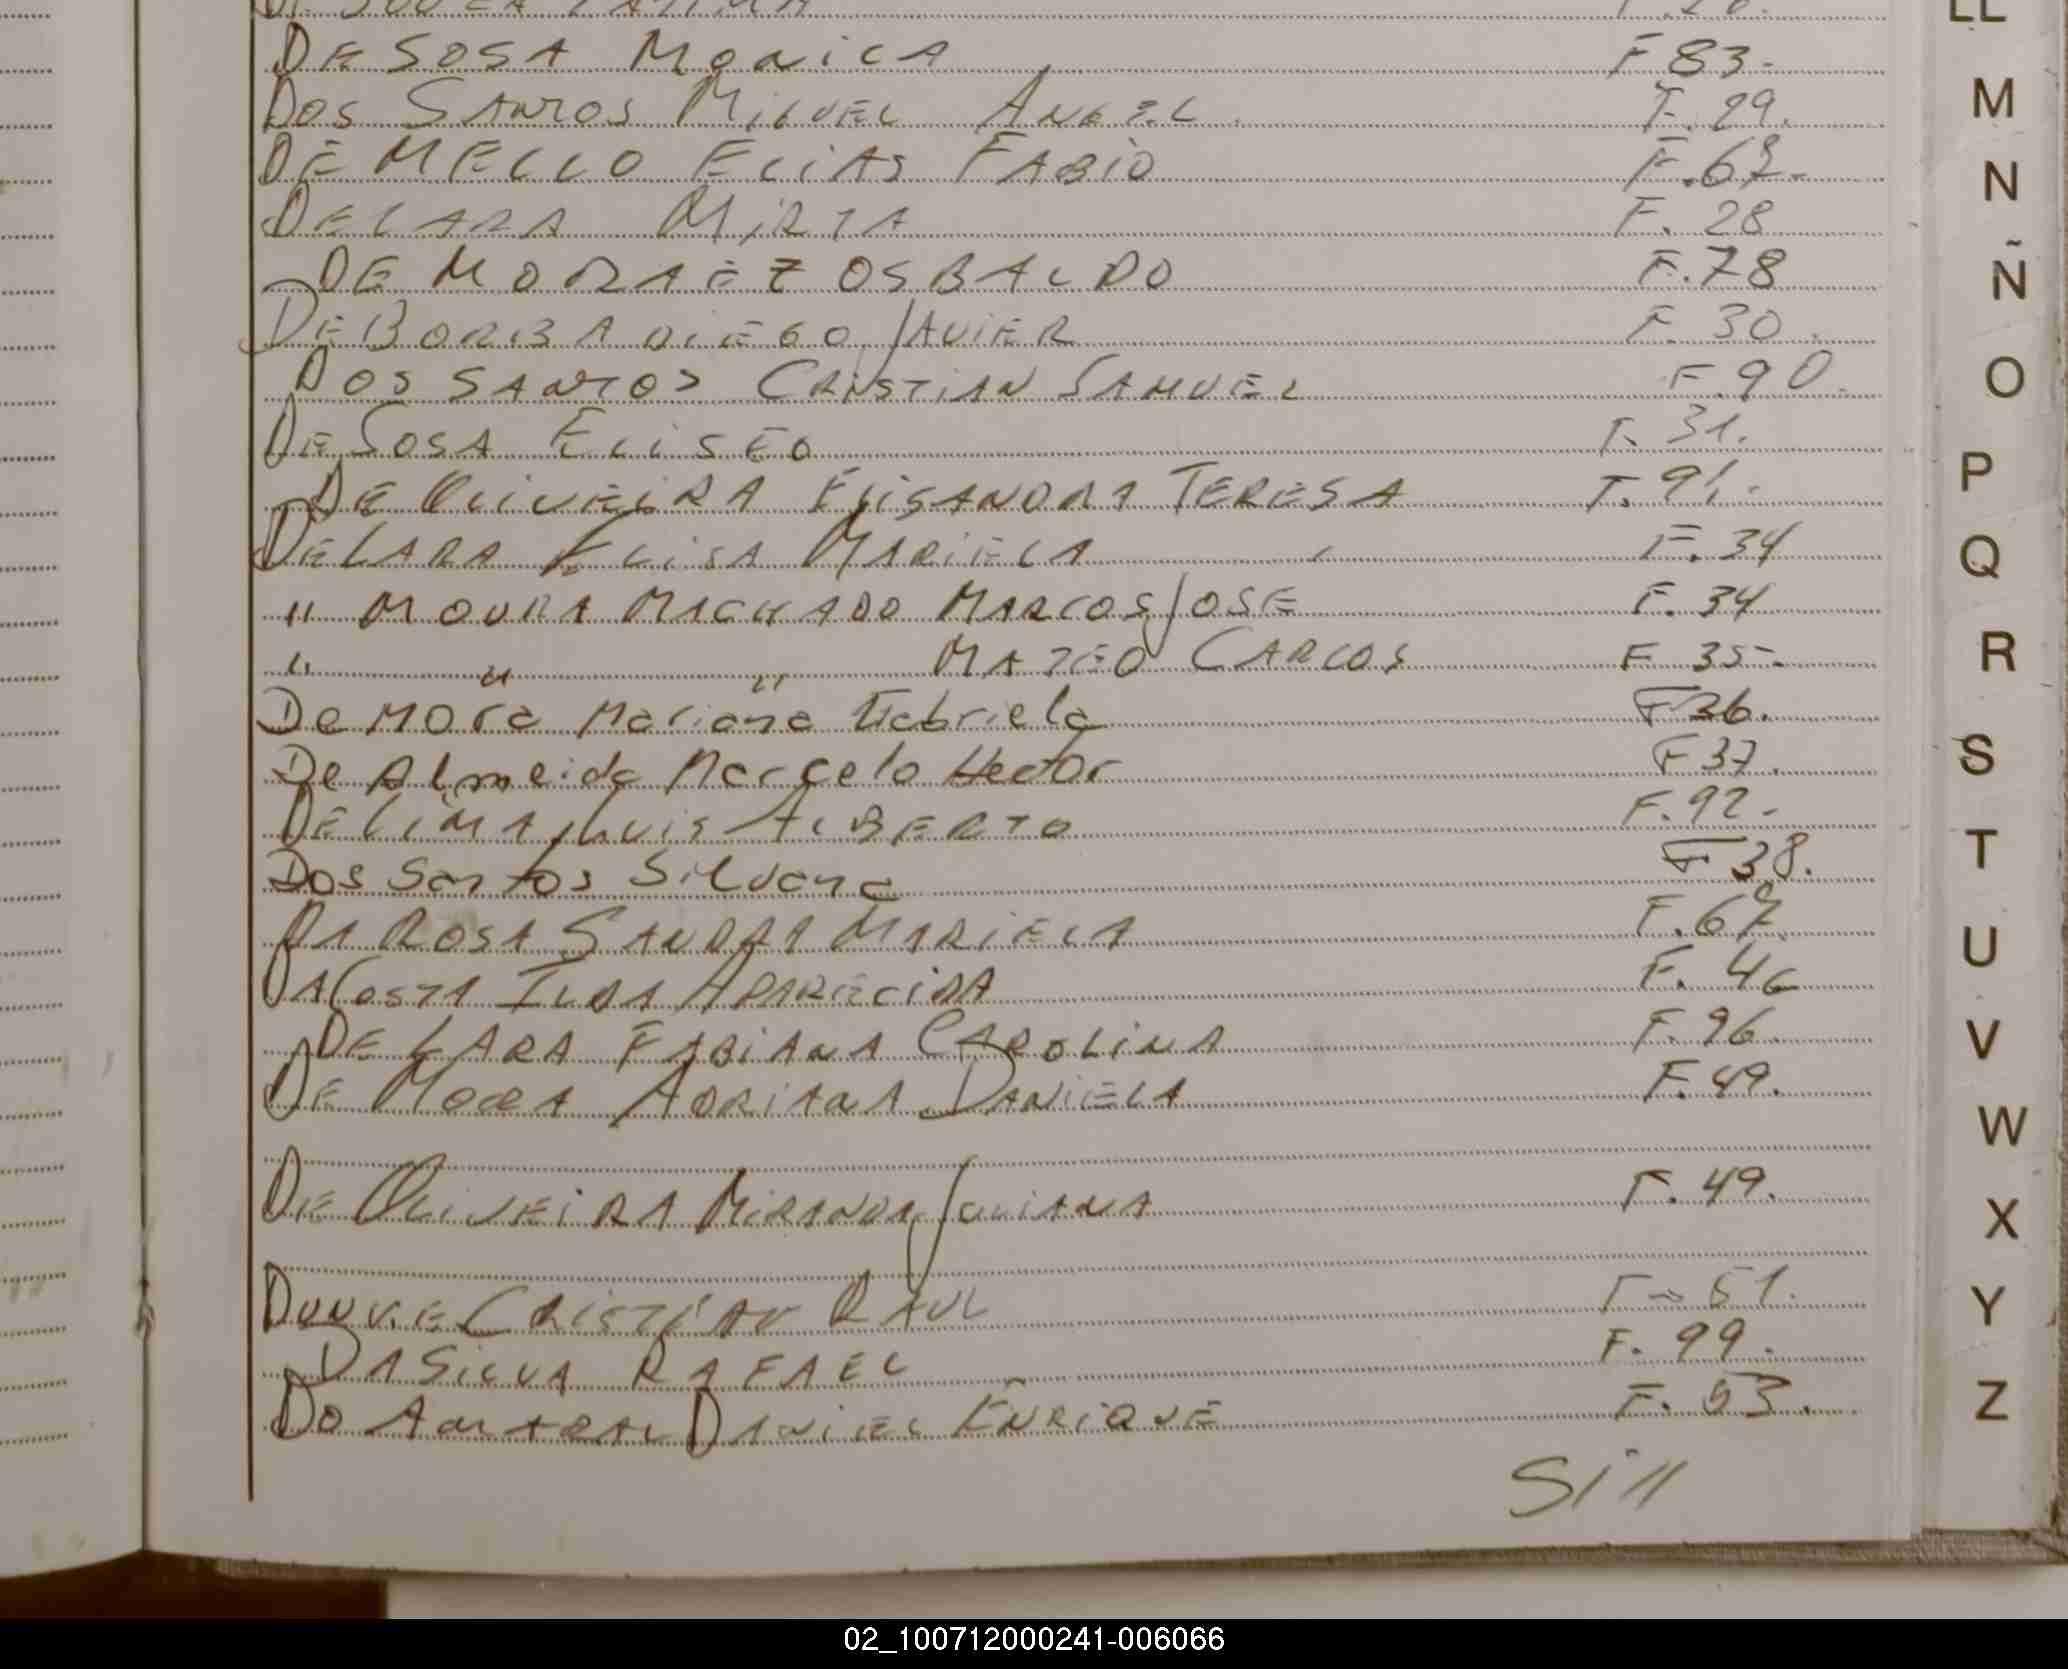 DE SOSA MONICA F 83.
DOS SANTOS MIGUEL ANGEL. F. 29.
DE MELLO ELIAS FABIO F. 67.
DE LARA MIRTA F. 28
DE MORAEZ OSBALDO F. 78
DE BORBA DIEGO JAVIER F. 30.
DOS SANTOS CRISTIAN SAMUEL F. 90.
DE SOSA ELISEO F. 31.
DE OLIVEIRA ELISANDRA TERESA F. 91.
DE LARA ELISA MARIELA F. 34
" MOURA MACHADO MARCOS JOSE F. 34
" " " MATEO CARLOS F 35.
De MOra Mariana Gabriela F 36.
De Almeida Marcelo Hector F 37.
DE LIMA LUIS ALBERTO F. 92.
Dos Santos Silvana F 38.
DA ROSA SANDRA MARIELA F. 67
DA COSTA ILDA APARECIDA F. 46
DE LARA FABIANA CAROLINA F. 96.
DE MORA ADRIANA DANIELA F. 49.
DE OLIVEIRA MIRANDA JULIANA F. 49.
CRISTIAN RAUL F 51.
DA SILVA RAFAEL F. 99.
DO AMARAL DANIEL ENRIQUE F. 53.
Si //
LL
M
N
Ñ
O
P
Q
R
S
T
U
V
W
X
Y
Z
02_100712000241-006066